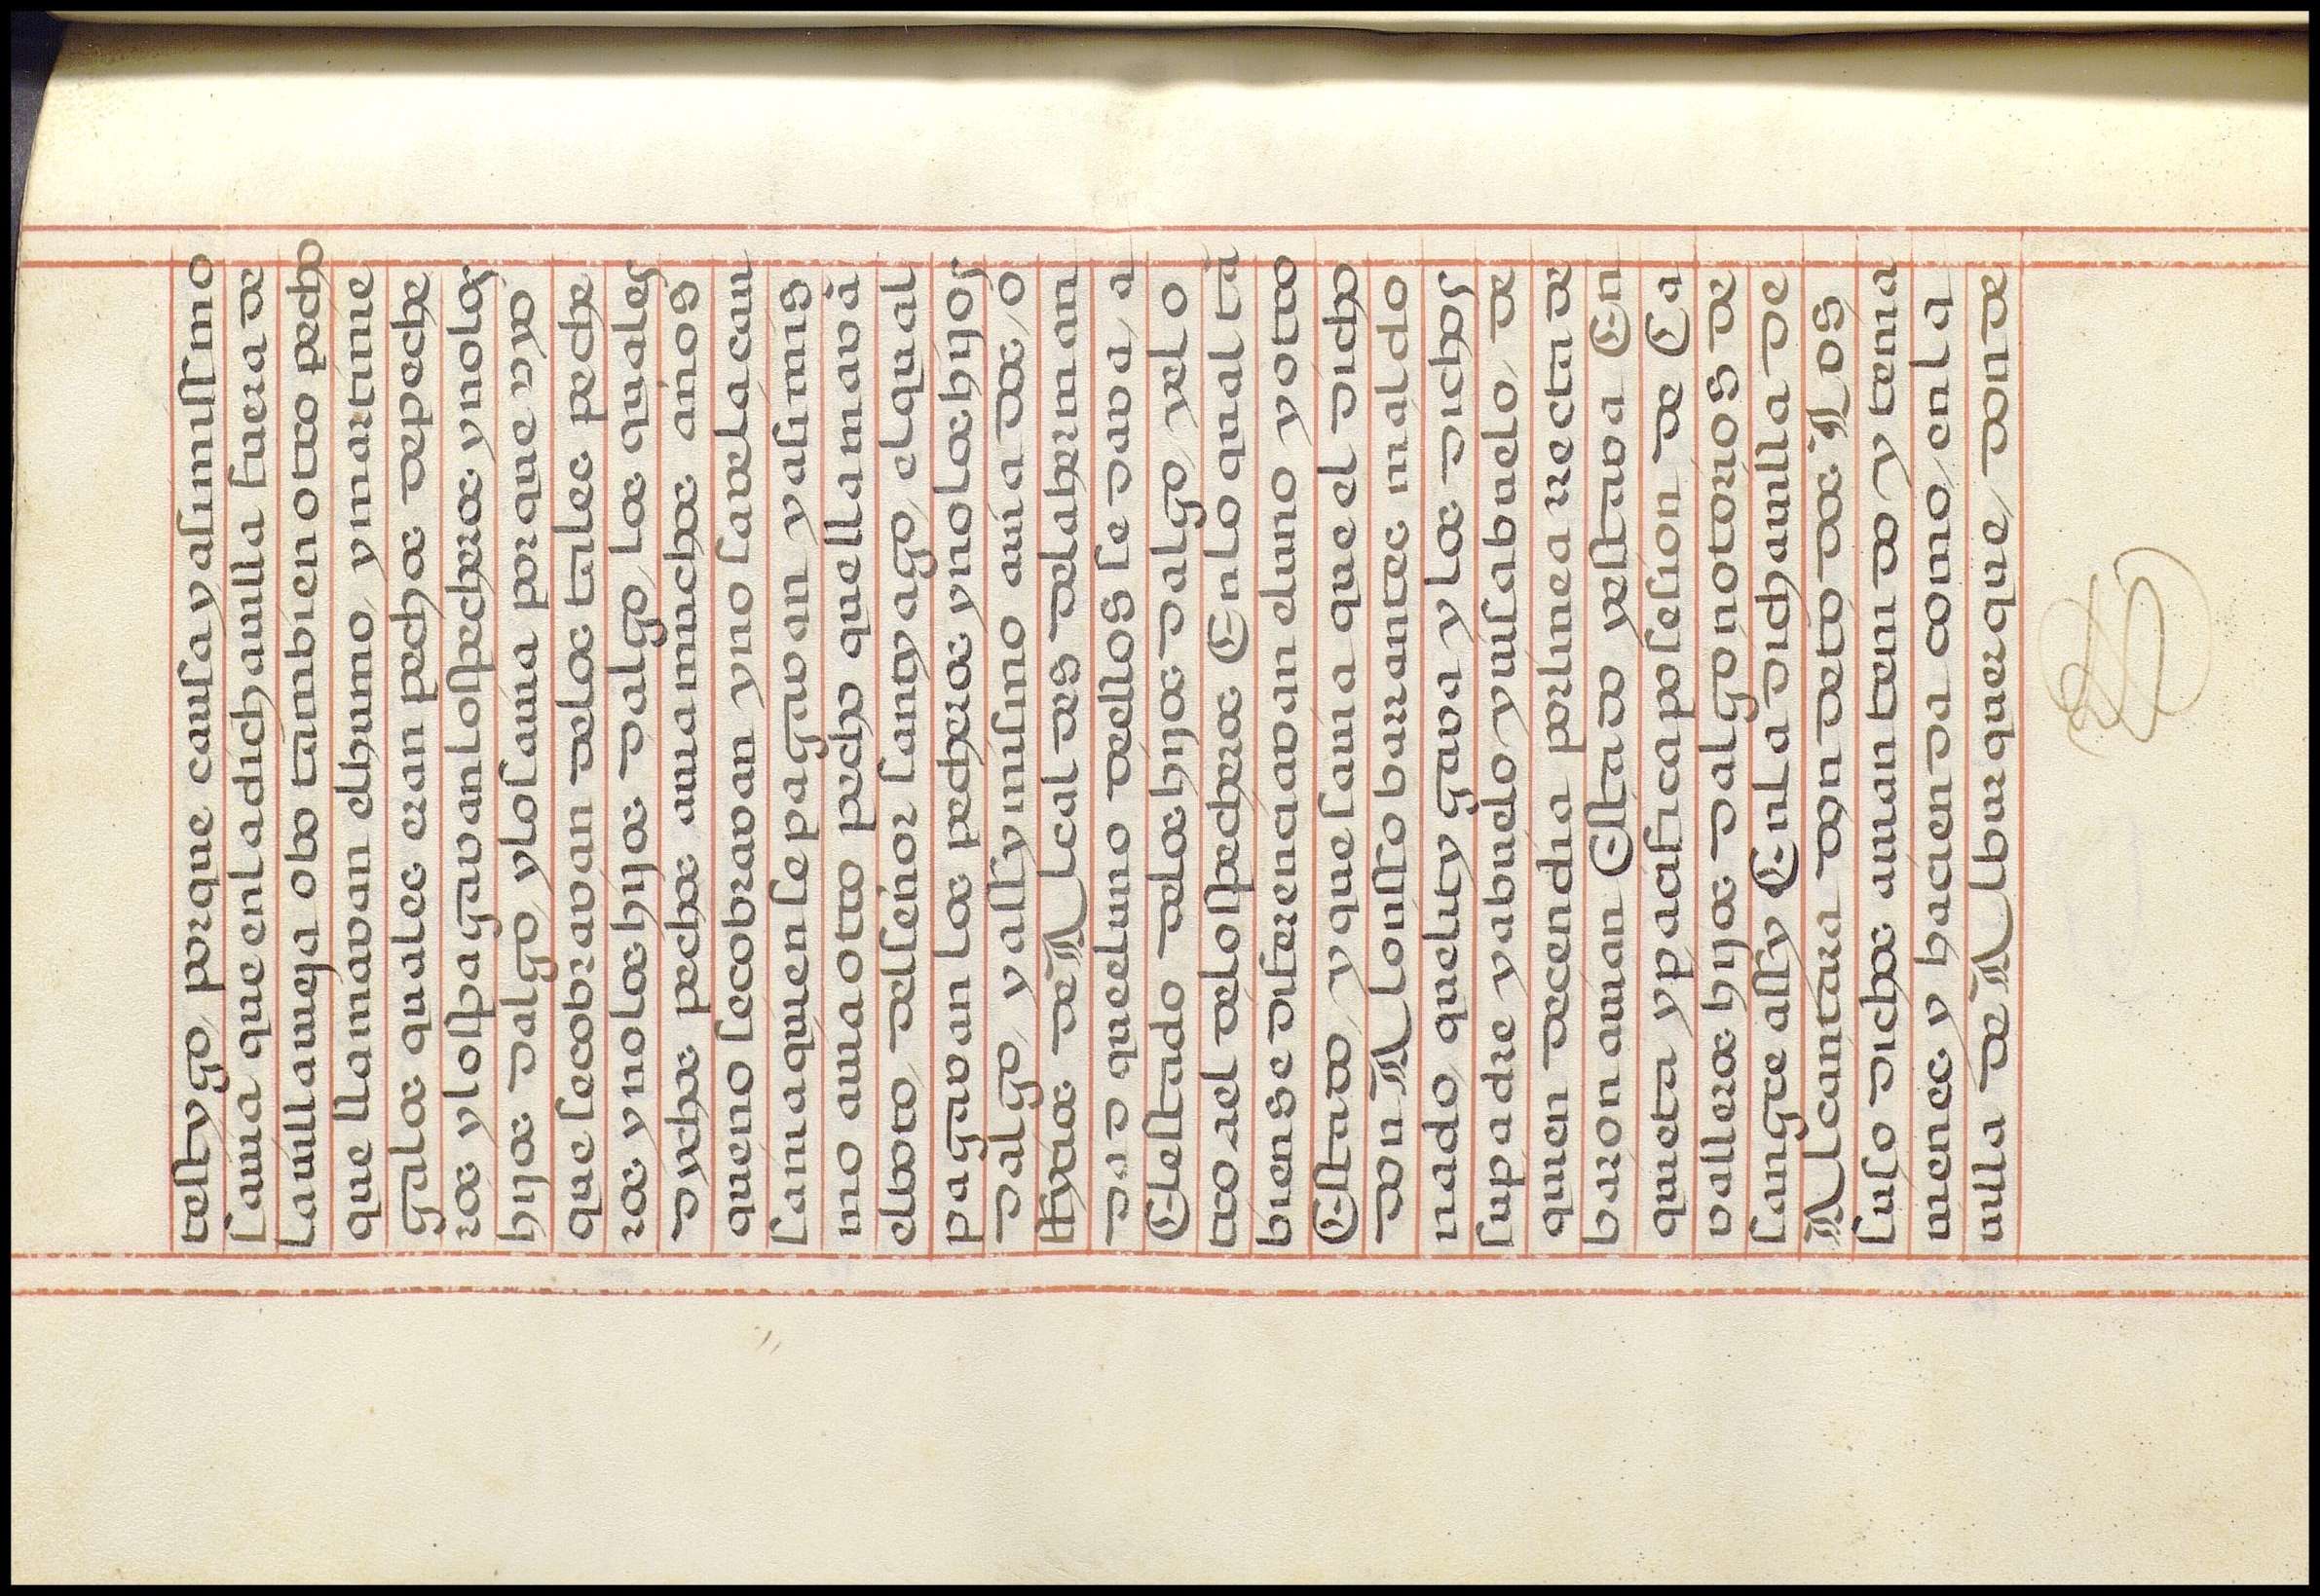 testygo, porque causa y asimissmo
savia que en la dicha villa fuera de
la villa vieja o do tambien otro pecho
que llamavan el humo, y martinie
galos quales eran pechos de peche
ros y los pagavan los pecheros y no los
hijos dalgo, y lo savia porque vyo
que se cobravan de los tales peche
ros y no los hijos dalgo, los quales
dychos pechos avia muchos años
que no se cobravan y no save la cau
sa ni a quien se pagavan y asimis
mo avia otro pecho que llamavā
el voto, del señor santyago, el qual
pagavan los pecheros y no los hijos
dalgo, y assy mismo avia dos, o
tryos de Alcaldes de la herman
dad que el uno dellos se dava, a
El estado de los hijos dalgo, y el o
tro a el de los pecheros En lo qual tā
bien se diferenciavan el uno y otro
Estado, y que savia que el dicho
don Alonsso barrantes maldo
nado, que lityGava y los dichos
su padre y abuelo y visabuelo, de
quien decendia por linea recta de
baron avian Estado y estava En
quieta y pacifica posesion de Ca
valleros hijos dalgo notorios de
sangre assy En la dicha villa de
Alcantara donde todos Los
suso dichos avian tenido y tenia
vienes y hacienda como, en la
villa de Alburquerque, donde